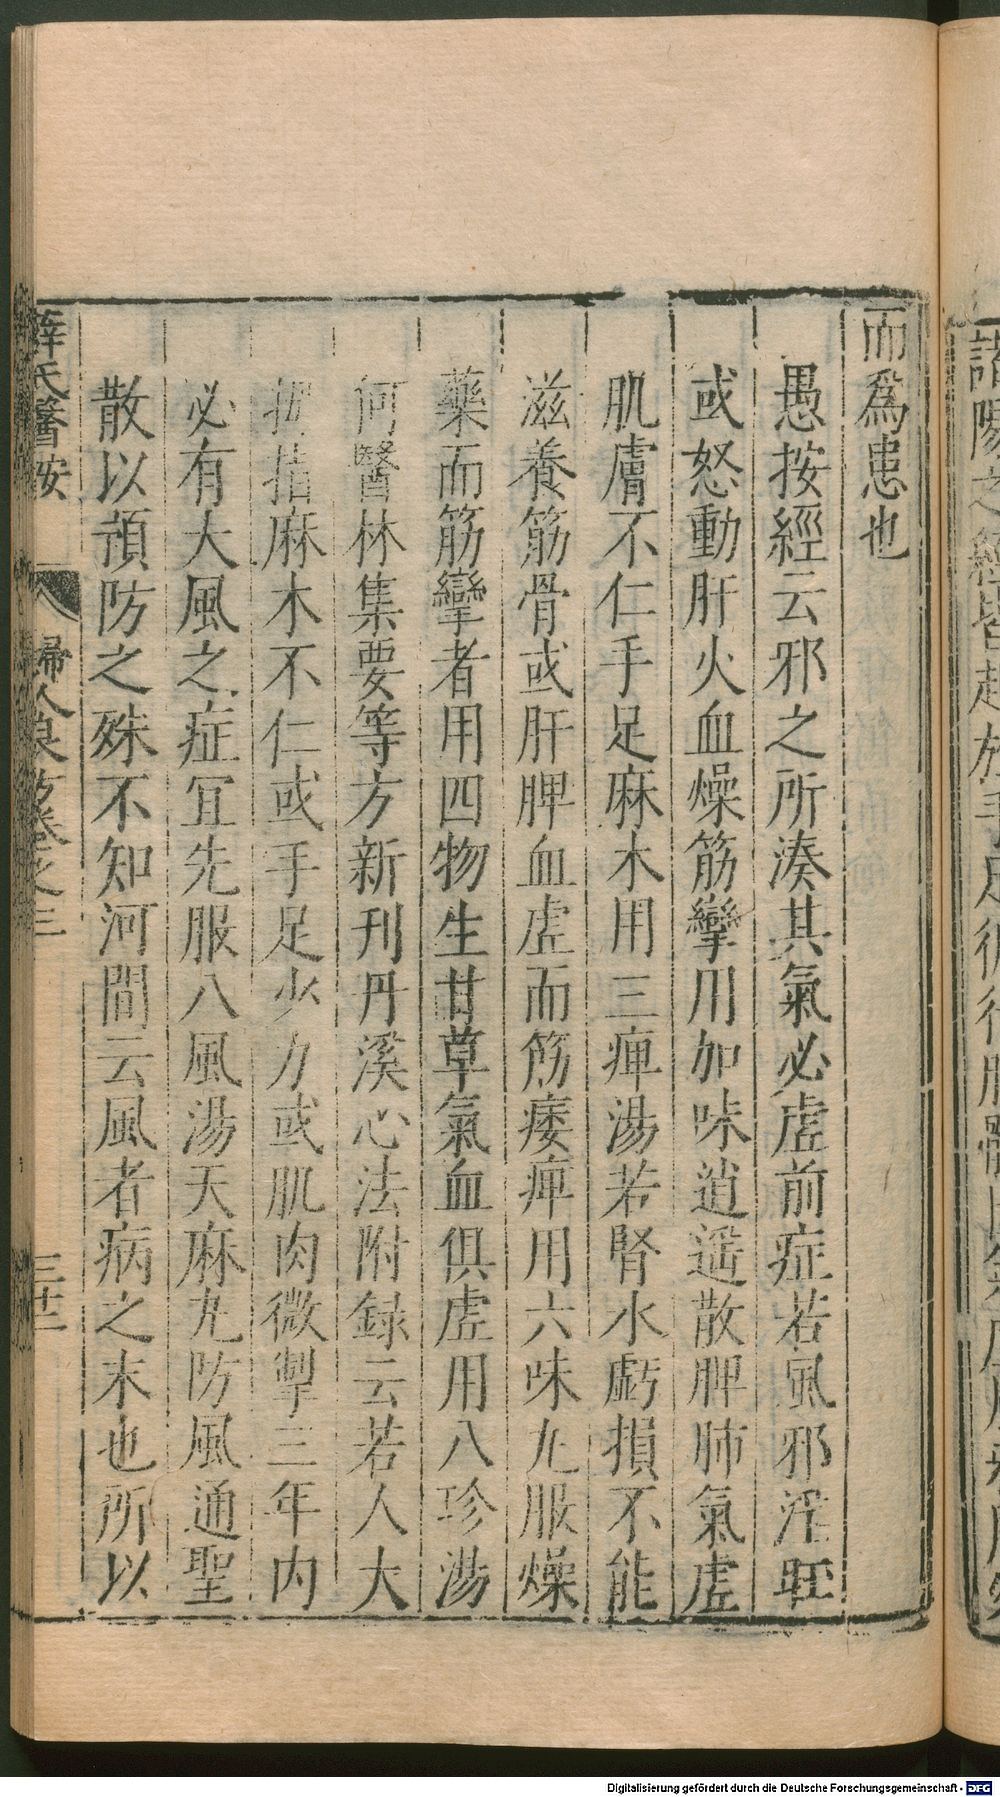 而爲患也
愚按經云邪之所湊其氣必虛前症若風邪淫旺
或怒動肝火血燥筋攣用加味逍遥散脾肺氣虛
肌膚不仁手足麻木用三痺湯若腎水虧損不能
滋養筋骨或肝脾血虛而筋痿痺用六味丸服燥
藥而筋攣者用四物生甘草氣血俱虛用八珍湯
何醫林集要等方新刊丹溪心法附録云若人大
拇指麻木不仁或手足少力或肌肉微掣三年内
必有大風之症冝先服八風湯天麻丸防風通聖
散以預防之殊不知河間云風者病之末也所以
薛氏醫按
婦人良方卷之三
三十二
Digitalisierung gefördert durch die Deutsche Forschungsgemeinschaft - DFG